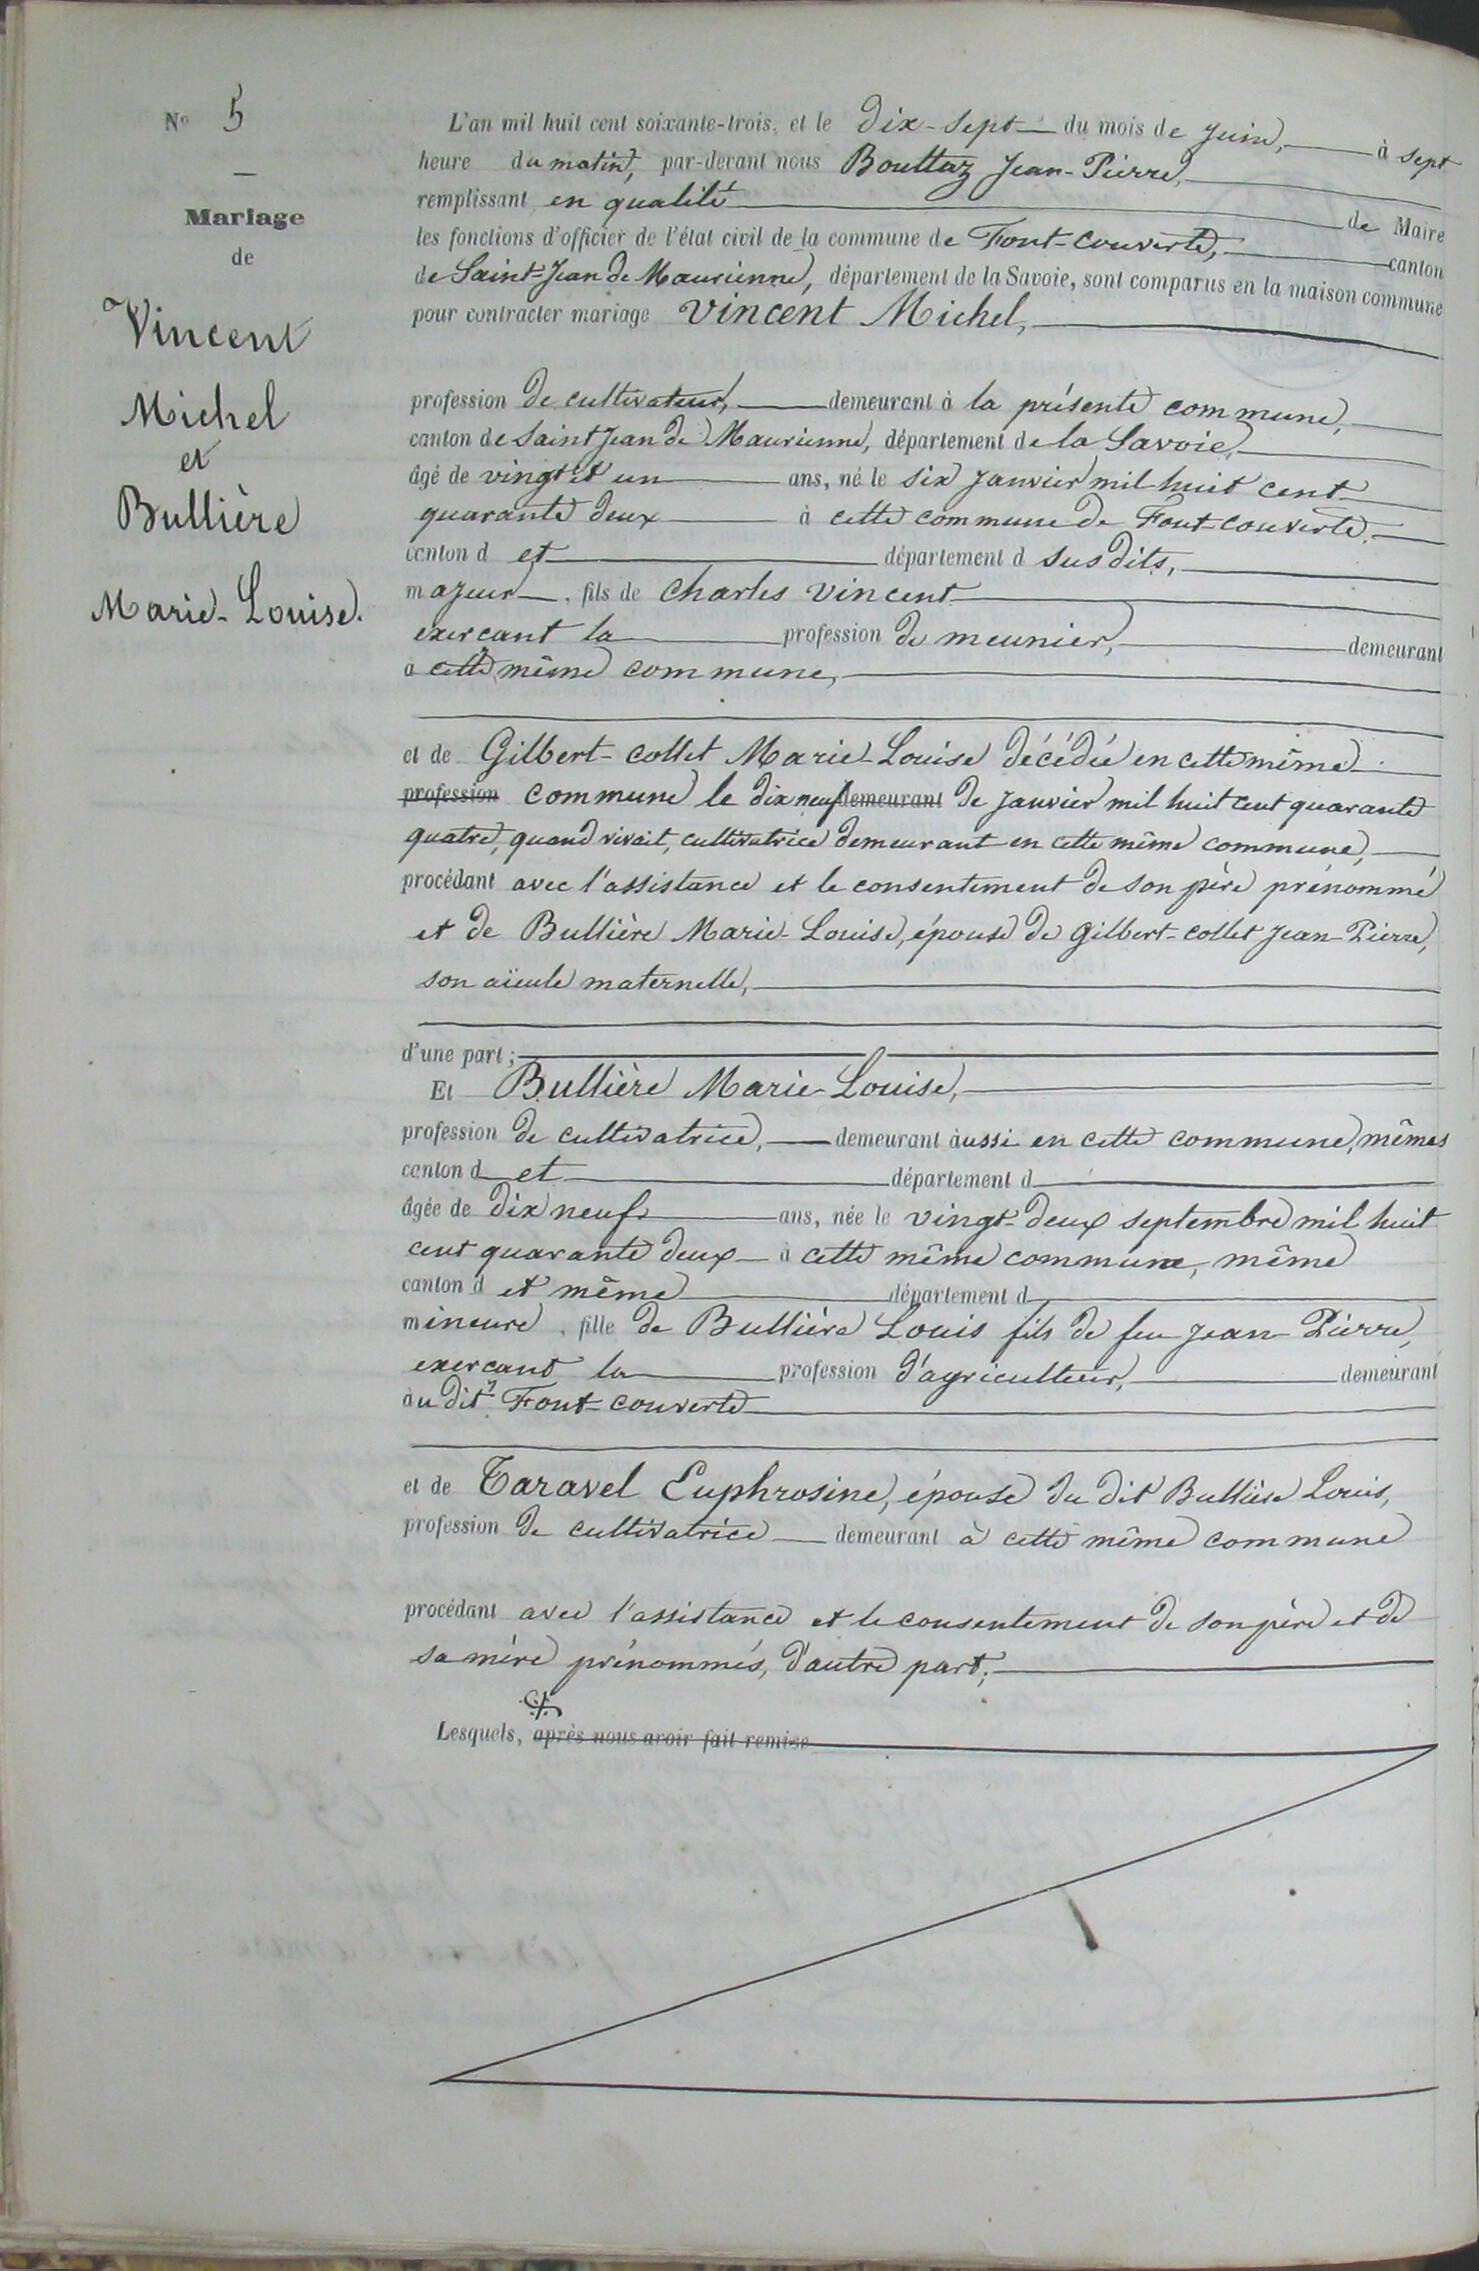 N° 5
Mariage
de
Vincent
Michel
et
Bullière
Marie-Louise.
L'an mil huit cent soixante-trois, et le dix-sept du mois de Juin, à sept
heure du matin, par-devant nous Bouttaz Jean-Pierre,
remplissant en qualité de Maire
les fonctions d'officier de l'état civil de la commune de Font-couverte, canton
de Saint-Jean de Maurienne, département de la Savoie, sont comparus en la maison commune
pour contracter mariage Vincent Michel,
profession de cultivateur, demeurant à la présente commune,
canton de Saint Jean de Maurienne, département de la Savoie,
âgé de vingt et un ans, né le six Janvier mil huit cent
quarante deux à cette commune de Font-couverte,
canton d et département d susdits,
majeur, fils de Charles Vincent
exerçant la profession de meunier, demeurant
à cette même commune,
et de Gilbert-collet Marie-Louise décédée en cette même
profession commune le dix neuf demeurant de Janvier mil huit cent quarante
quatre, quand vivait, cultivatrice demeurant en cette même commune,
procédant avec l'assistance et le consentement de son père prénommé
et de Bullière Marie-Louise, épouse de Gilbert-collet Jean-Pierre,
son aïeule maternelle,
d'une part;
Et Bullière Marie-Louise,
profession de cultivatrice, demeurant aussi en cette commune, mêmes
canton d et département d
âgée de dix neuf ans, née le vingt-deux septembre mil huit
cent quarante deux à cette même commune, même
canton d et même département d
mineure, fille de Bullière Louis fils de feu Jean Pierre,
exerçant la profession d'agriculteur, demeurant
au dit Font-couverte
et de Taravel Euphrosine, épouse du dit Bullière Louis,
profession de cultivatrice demeurant à cette même commune
procédant avec l'assistance et le consentement de son père et de
sa mère prénommés, d'autre part;
Lesquels, après nous avoir fait remise